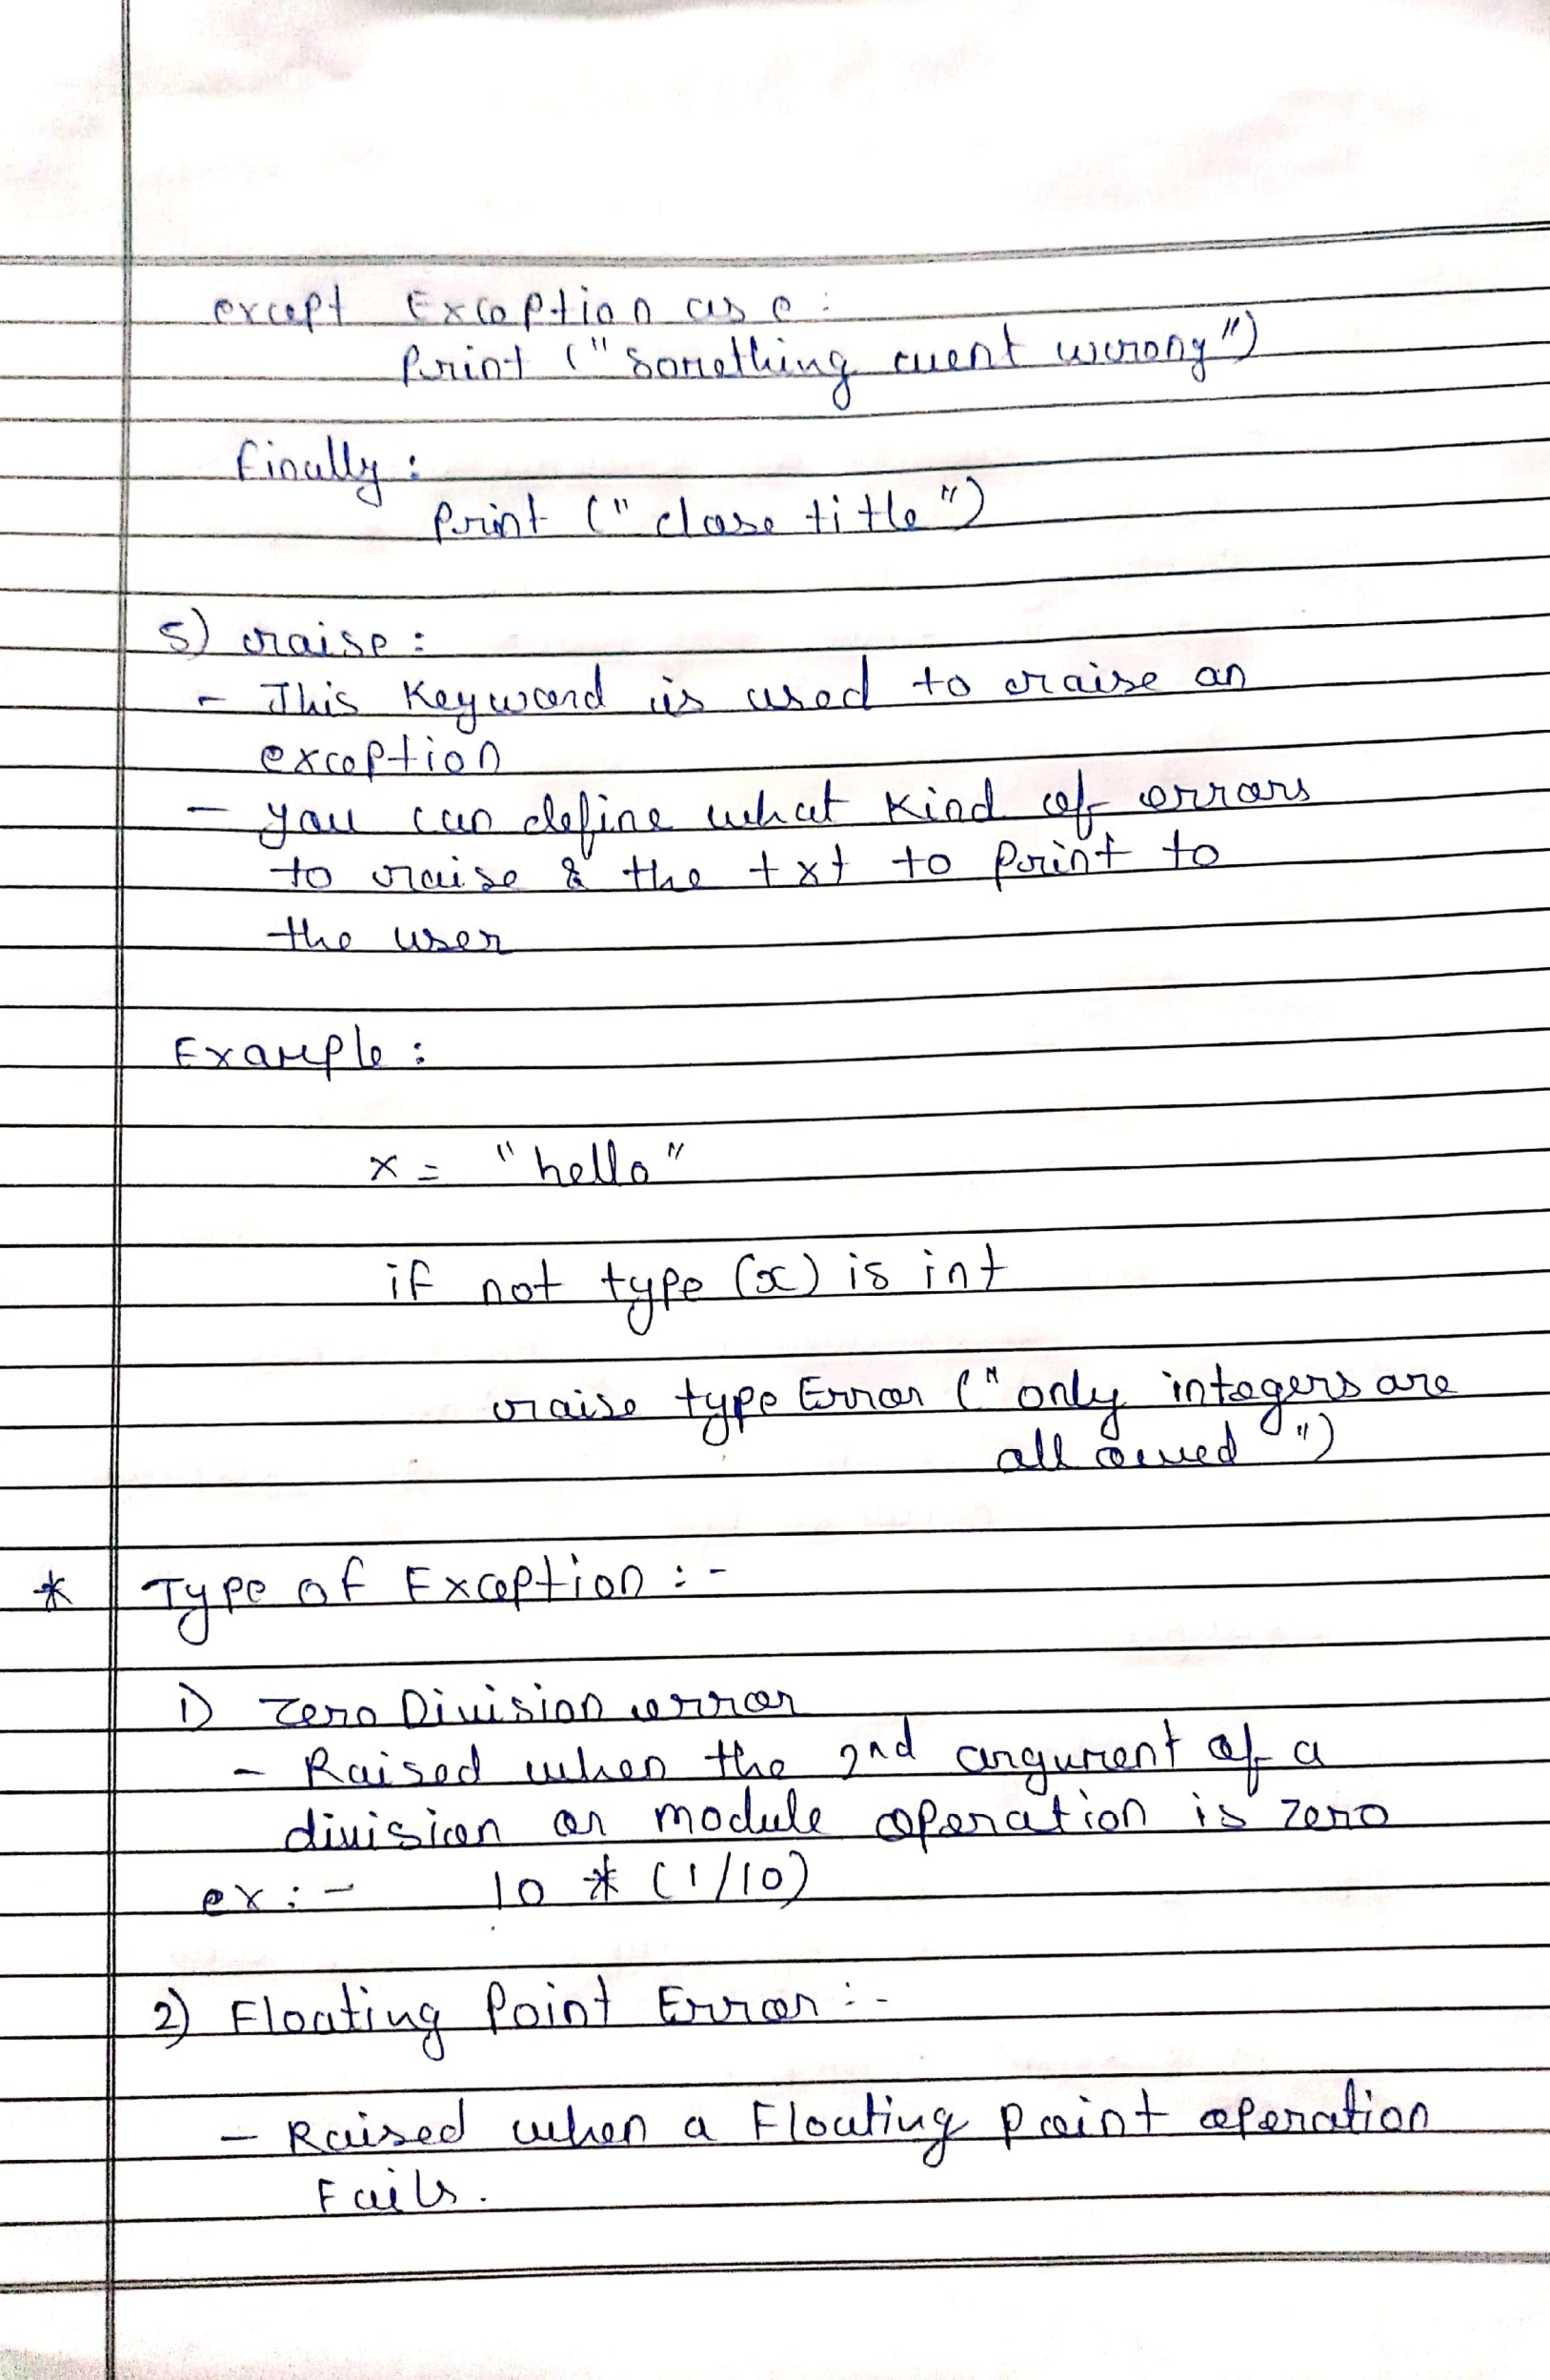 except Exception as e:
Print ("Something went wrong")
Finally:
Print ("close title")
5) raise:
- This Keyword is used to raise an
exception
- you can define what Kind of errors
to raise & the txt to Print to
the user
Example:
x = "hello"
if not type (x) is int
raise type Error ("only integers are
allowed")
* Type of Exception :-
1) Zero Division error
- Raised when the 2nd argument of a
division or module operation is zero
ex :- 10 * (1/10)
2) Floating Point Error :-
- Raised when a Floating point operation
Fails.